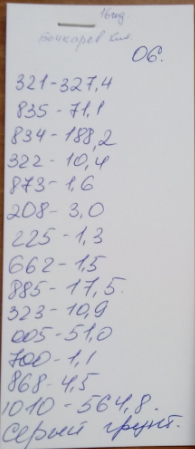 06.
321-327,4
835-71,1
834-188,2
322-10,4
873-1,6
208-3,0
225-1,3
662-1,5
885-17,5.
323-10,9
005-51,0
700-1,1
868-4,5
1010-564,8.
Серый грунт.